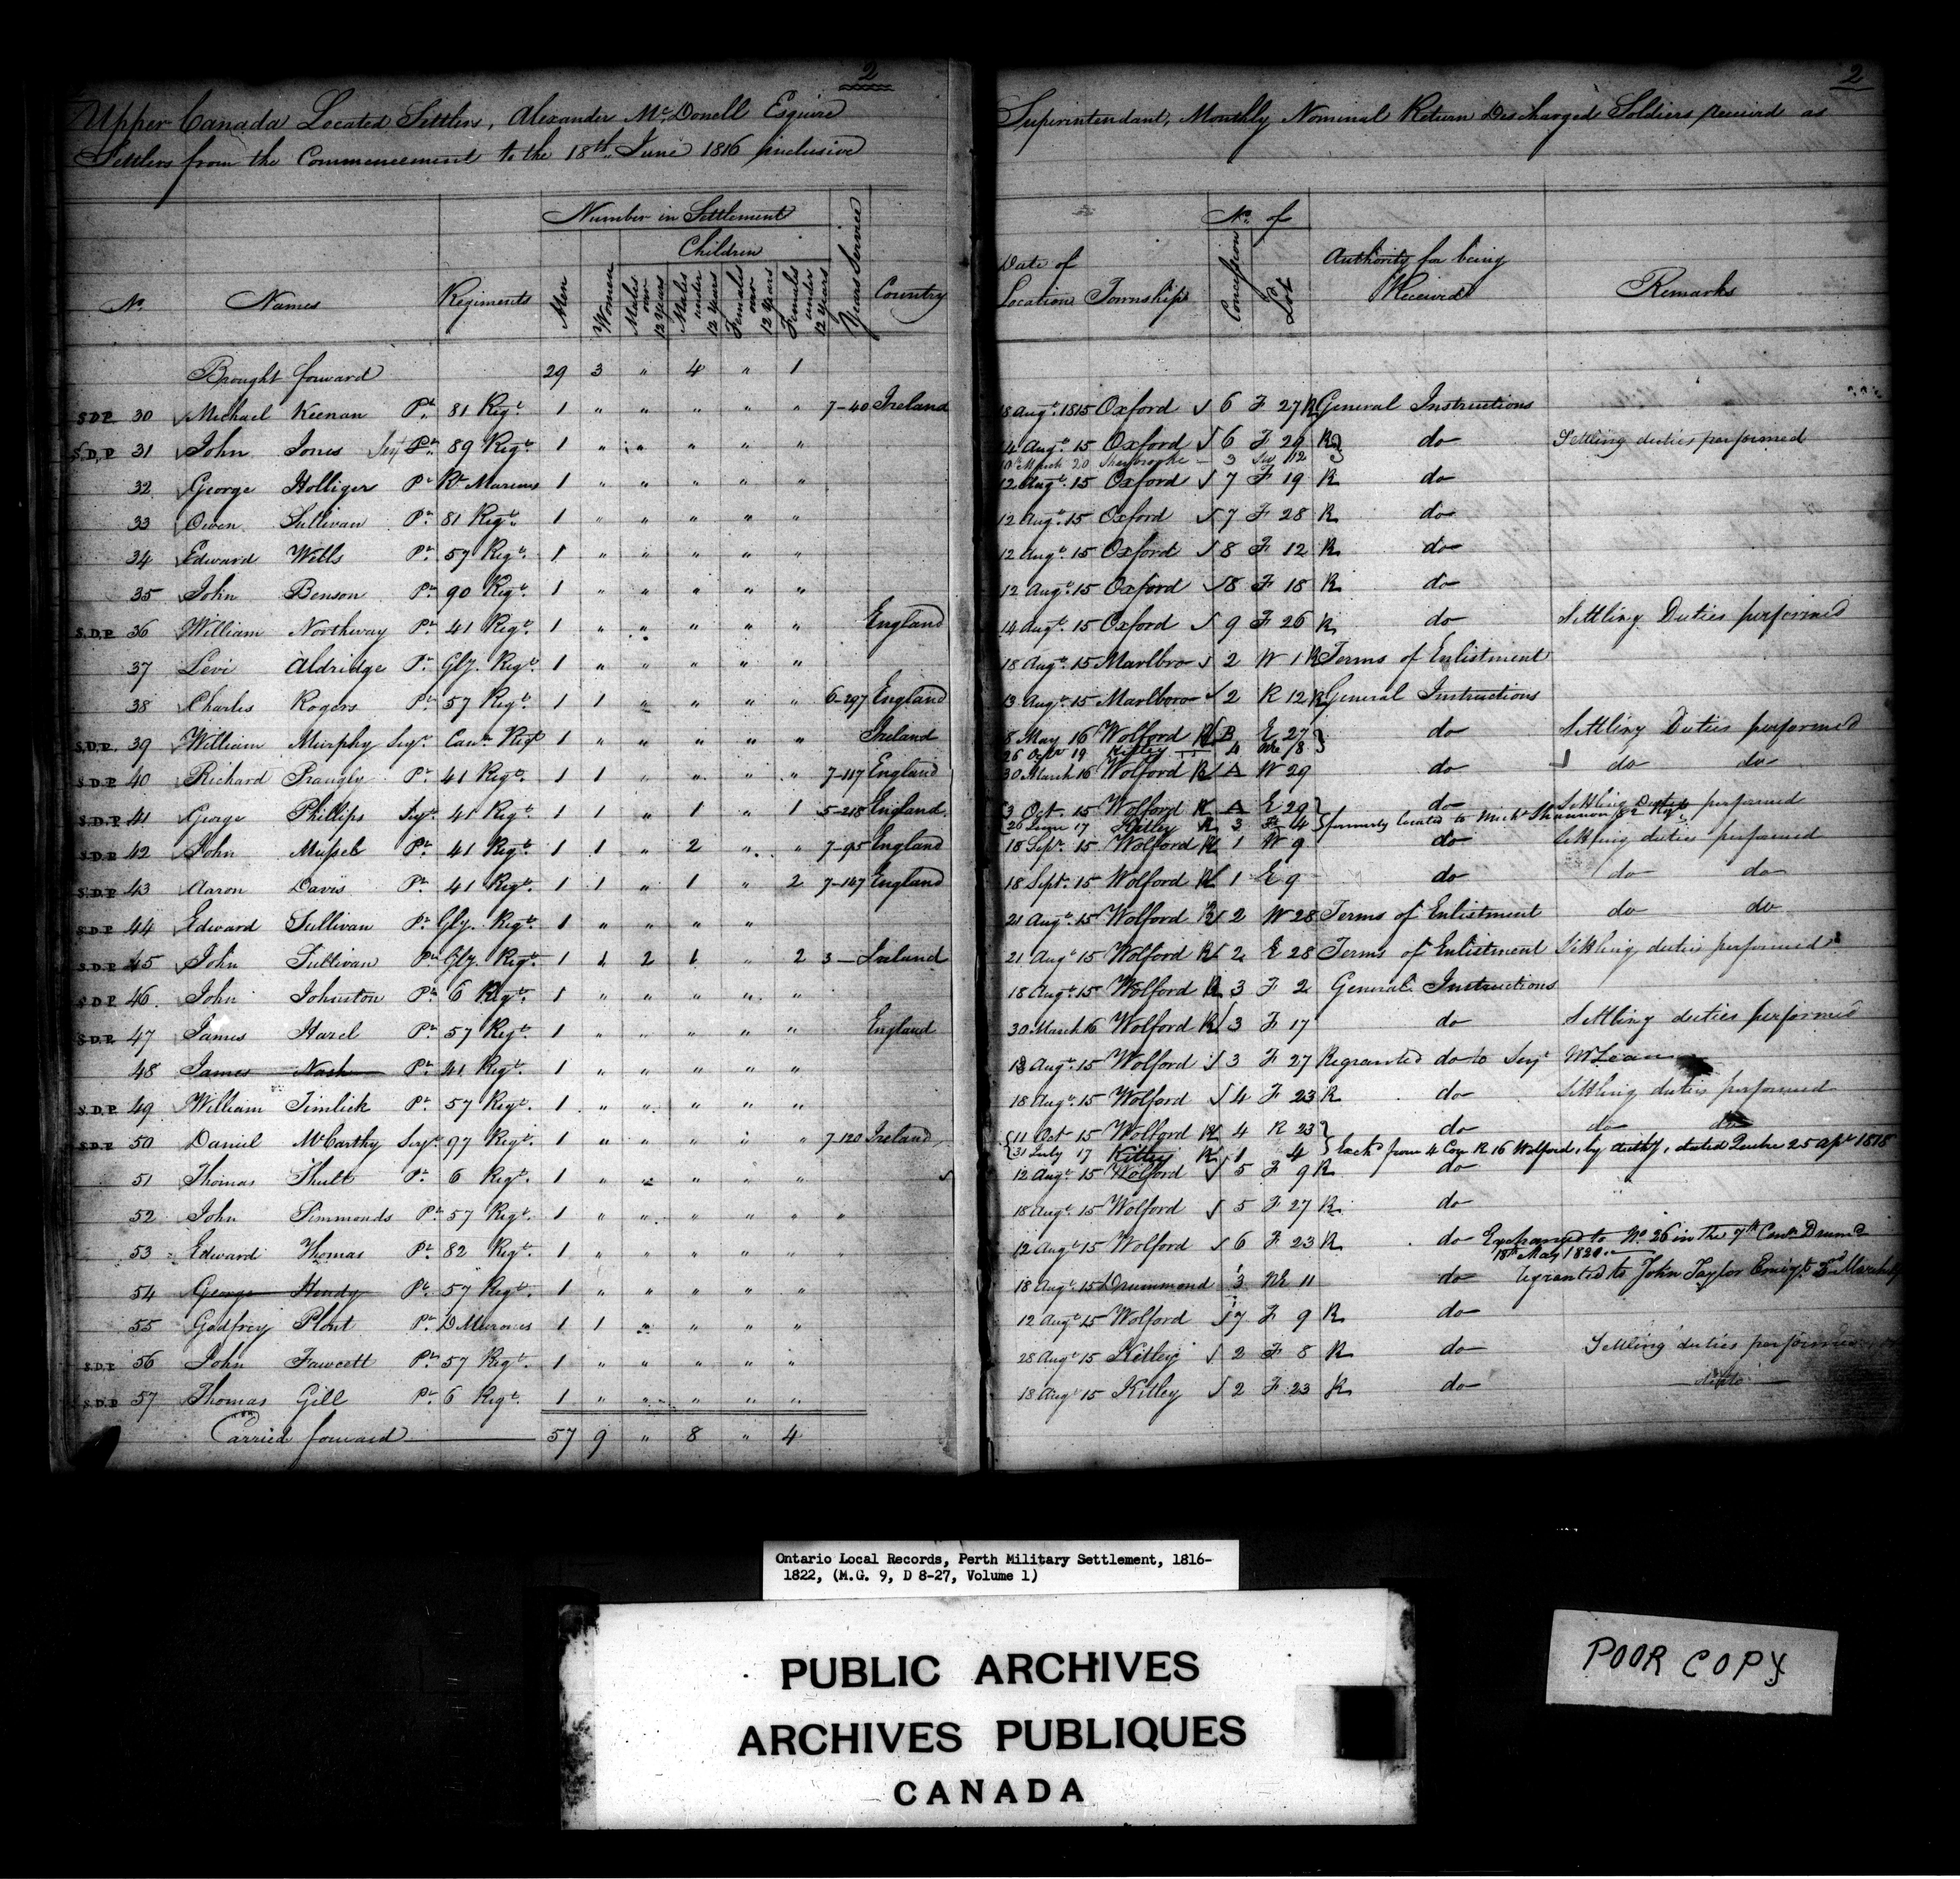 2
Upper Canada Located Settlers, Alexander McDonell Esquire
Settlers from the Commencement to the 18th June 1816 inclusive
Number in Settlement
Children
No. Names Regiments Men Women Males over 12 years Males under 12 years Females over 12 years Females under 12 years Years Service Country
Brought forward 29 3 " 4 " 1
S.D.P. 30 Michael Keenan Pt. 81 Regt. 1 " " " " " 7-40 Ireland
S.D.P. 31 John Jones Sejt Pt. 89 Regt. 1 " " " " "
32 George Holliger Pt. Rl Marines 1 " " " " "
33 Owen Sullivan Pt. 81 Regt. 1 " " " " "
34 Edward Wells Pt. 57 Regt. 1 " " " " "
35 John Benson Pt. 90 Regt. 1 " " " " "
S.D.P. 36 William Northway Pt. 41 Regt. 1 " " " " " England
37 Levi Aldridge Pt. Gly. Regt. 1 " " " " "
38 Charles Rogers Pt. 57 Regt. 1 1 " " " " 6-297 England
S.D.P. 39 William Murphy Sejt. Can. Regt 1 " " " " " Ireland
S.D.P. 40 Richard Pt. 41 Regt. 1 1 " " " " 7-117 England
S.D.P. 41 George Phillips Sejt. 41 Regt. 1 1 " 1 " 1 5-218 England
S.D.P. 42 John Mussel Pt. 41 Regt. 1 1 " 2 " " 7-95 England
S.D.P. 43 Aaron Davis Pt. 41 Regt. 1 1 " 1 " 2 7-147 England
S.D.P. 44 Edward Sullivan Pt. Gly. Regt. 1 " " " "
S.D.P. 45 John Sullivan Pt. Gly. Regt. 1 1 2 1 " 2 3 — Ireland
S.D.P. 46 John Johnston Pt. 6 Regt. 1 " " " " "
S.D.P. 47 James Harel Pt. 57 Regt. 1 " " " " " England
48 James Nash Pt. 41 Regt. 1 " " " " "
S.D.P. 49 William Timlick Pt. 57 Regt. 1 " " " " "
S.D.P. 50 Daniel McCarthy Sejt. 97 Regt. 1 " " " " " 7-120 Ireland
51 Thomas Pt. 6 Regt. 1 " " " " "
52 John Simmonds Pt. 57 Regt. 1 " " " " " "
53 Edward Thomas Pt. 82 Regt. 1 " " " " " "
54 George Hendy Pt. 57 Regt. 1 " " " " "
55 Godfrey Plont Pt. D Meurons 1 1 " " " "
S.D.P. 56 John Fawcett Pt. 57 Regt. 1 " " " " "
S.D.P. 57 Thomas Gill Pt. 6 Regt. 1 " " " " "
Carried forward 57 9 " 8 " 4
2
Superintendant, Monthly Nominal Return Discharged Soldiers received as
No. of
Date of Location Township Concession Lot Authority for being Received Remarks
18 Augt. 1815 Oxford 6 F 27 R General Instructions
14 Augt. 15 Oxford 6 F 29 R do Settling duties performed
10th March 20 Sherbrooke - 3 SW 12
12 Augt. 15 Oxford 7 F 19 R do
12 Augt. 15 Oxford 7 F 28 R do
12 Augt. 15 Oxford 8 F 12 R do
12 Augt. 15 Oxford 8 F 18 R do
14 Augt. 15 Oxford 9 F 26 R do Settling Duties performed
18 Augt. 15 Marlbro 2 W 1 R Terms of Enlistment
13 Augt. 15 Marlboro 2 R 12 R General Instructions
8 May 16 Wolford R B E 27 do Settling Duties performed
26 Octr 19 Kitley 4 8
30 March 16 Wolford R A W 29 do do do
3 Oct. 15 Wolford R A E 29 do Settling Duties performed
26 June 17 Kitley R 3 4 formerly located to Michl Shannon 82 Regt
18 Sept. 15 Wolford R 1 W 9 do Settling duties performed
18 Sept. 15 Wolford R 1 E 9 do do do
21 Augt. 15 Wolford R 2 W 28 Terms of Enlistment do do
21 Augt 15 Wolford R 2 E 28 Terms of Enlistment Settling duties performed
18 Augt. 15 Wolford R 3 F 2 General Instructions
30 March 16 Wolford R 3 F 17 do Settling duties performed
18 Augt. 15 Wolford 3 F 27 Regranted do to Sejt McLean
18 Augt. 15 Wolford 4 F 23 R do Settling duties performed
11 Oct 15 Wolford R 4 R 23 do do do
31 July 17 Kitley R 1 4 Exchd from 4 Con R 16 Wolford, by Authy, dated Quebec 25 Apl 1818
12 Augt. 15 Wolford 5 F 9 R do
18 Augt. 15 Wolford 5 F 27 R do
12 Augt 15 Wolford 6 F 23 R do Exchanged to No 26 in the 7th Conn Drumd
18th May 1820
18 Augt. 15 Drummond 3 NE 11 do Regranted to John Taylor Emigt.
12 Augt 15 Wolford 7 F 9 R do
28 Augt 15 Kitley 2 F 8 R do Settling duties performed
18 Augt 15 Kitley 2 F 23 R do ditto
Ontario Local Records, Perth Military Settlement, 1816-
1822, (M.G. 9, D 8-27, Volume 1)
PUBLIC ARCHIVES
ARCHIVES PUBLIQUES
CANADA
POOR COPY